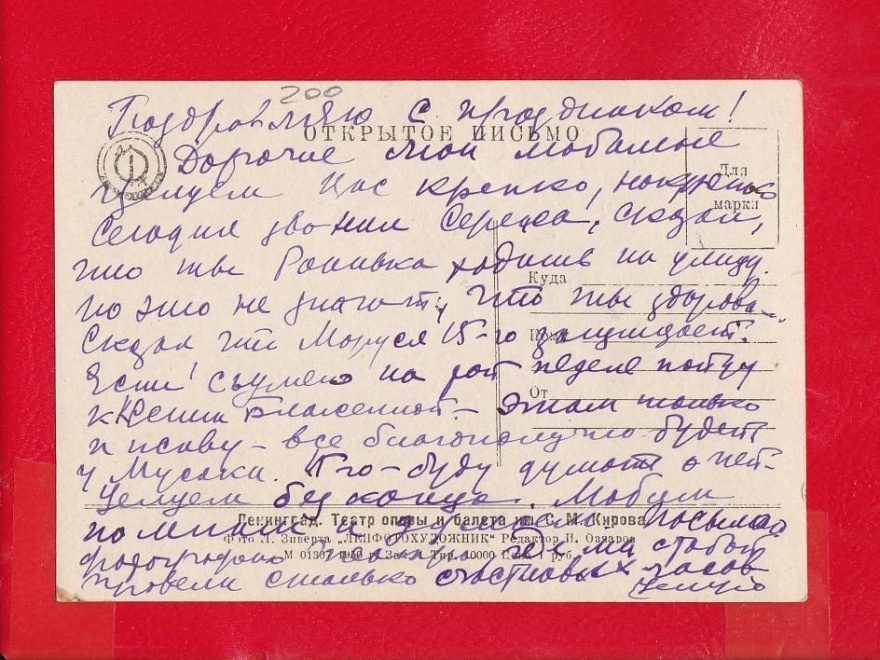 200
Поздравляю с праздником!
ОТКРЫТОЕ ПИСЬМО
Дорогие мои любимые
Для
марки
целуем Вас крепко,
Сегодня звонил Сережа, сказал,
что ты ходишь на улицу.
Куда
но это не значит, что ты здорова.
Сказал что Маруся 15-го защищает.
Если сумею на этой неделе пойду
От
к Ксении Блаженной. этим только
и живу – все благополучно будет
у Мусеньки. 15-го буду думать о ней.
Целуем без конца. Любим
Ленинград. Театр оперы и балета им. С. М. Кирова
помним и Посылаю
Фото Л. Зиверта „ЛЕНФОТОХУДОЖНИК" Редактор И.
фотографию театра где мы с тобой
Тир. 10000 Цена 1 руб.
провели столько счастливых часов
Целую